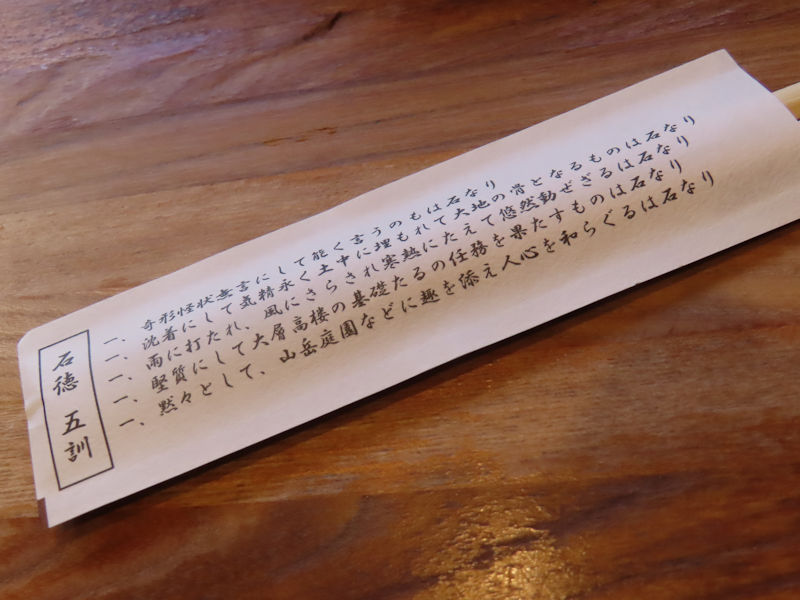 石徳 五訓
一、奇形怪状無言にして能く言うのもは石なり
一、沈着にして気精永く土中に埋もれて大地の骨となるものは石なり
一、雨に打たれ、風にさらされ寒熱にたえて悠然動ぜざるは石なり
一、堅質にして大層高楼の基礎たるの任務を果たすものは石なり
一、黙々として、山岳庭園などに趣を添え人心を和らぐるは石なり